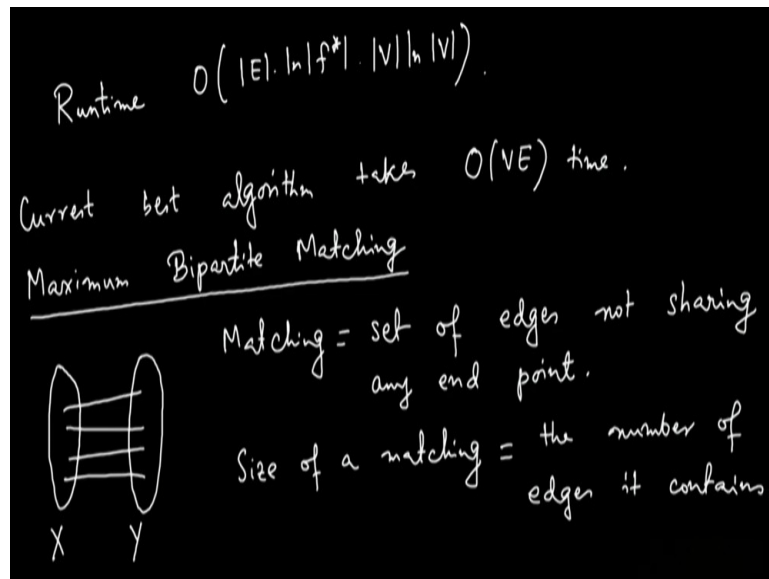 Runtime O(|E|. ln|f*| . |V| ln |V|).
Current best algorithm takes O(VE) time.
Maximum Bipartite Matching
Matching = set of edges not sharing
any end point.
Size of a matching = the number of
edges it contains
X Y